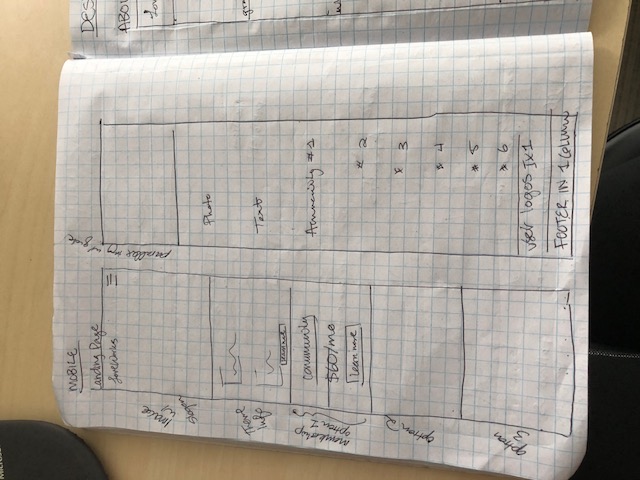 MOBILE
Landing Page
LoveWorks
Image
w/
slogan
Theme
Info
Learn more
membership
option 1
Community
$60/mo
Learn more
option 2
option
3
parallax img w/ quote
Photo
Text
Ammenity #1
# 2
# 3
# 4
# 5
# 6
user logos 1x1
FOOTER IN 1 Column
DES
ABOU